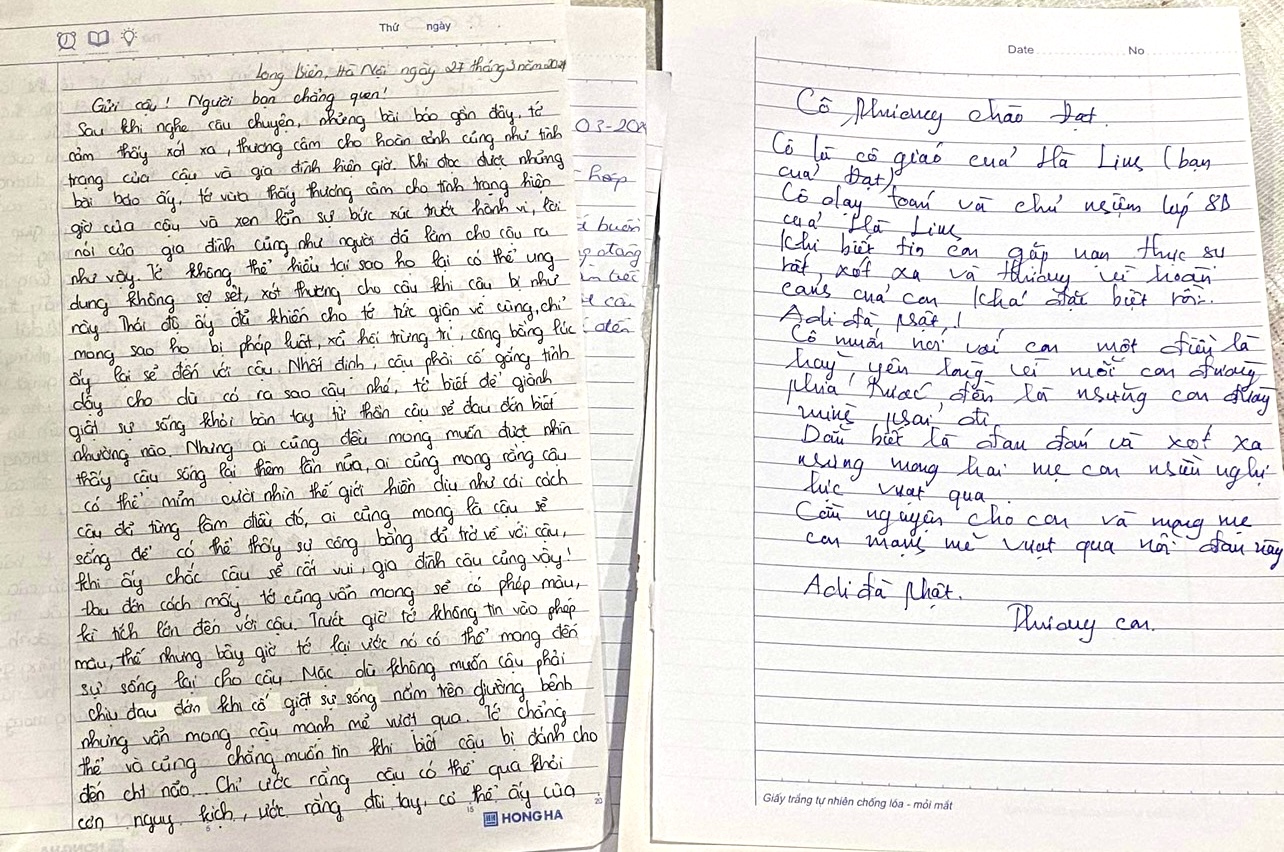 Thứ ngày
Long Biên, Hà Nội ngày 27 tháng 3 năm 2024
Gửi cậu! Người bạn chẳng quen!
Sau khi nghe câu chuyện, những bài báo gần đây, tớ
cảm thấy xót xa, thương cảm cho hoàn cảnh cũng như tình
trạng của cậu và gia đình hiện giờ. Khi đọc được những
bài báo ấy, tớ vừa thấy thương cảm cho tình trạng hiện
giờ của cậu và xen lẫn sự bức xúc trước hành vi, lời
nói của gia đình cũng như người đã làm cho cậu ra
như vậy. Tớ không thể hiểu tại sao họ lại có thể ung
dung không sợ sệt, xót thương cho cậu khi cậu bị như
này. Thái độ ấy đã khiến cho tớ tức giận vô cùng, chỉ
mong sao họ bị pháp luật, xã hội trừng trị, công bằng lúc
ấy lại sẽ đến với cậu. Nhất định, cậu phải cố gắng tỉnh
dậy cho dù có ra sao cậu nhé, tớ biết để giành
giật sự sống khỏi bàn tay tử thần cậu sẽ đau đớn biết
nhường nào. Nhưng ai cũng đều mong muốn được nhìn
thấy cậu sống lại thêm lần nữa, ai cũng mong rằng cậu
có thể mỉm cười nhìn thế giới hiền dịu như cái cách
cậu đã từng làm điều đó, ai cũng mong là cậu sẽ
sống để có thể thấy sự công bằng đã trở về với cậu,
khi ấy chắc cậu sẽ rất vui, gia đình cậu cũng vậy!
Đau đớn cách mấy tớ cũng vẫn mong sẽ có phép màu,
kì tích lớn đến với cậu. Trước giờ tớ không tin vào phép
màu, thế nhưng bây giờ tớ lại ước nó có thể mang đến
sự sống lại cho cậu. Mặc dù không muốn cậu phải
chịu đau đớn khi cố giật sự sống nằm trên giường bệnh
nhưng vẫn mong cậu mạnh mẽ vượt qua. Tớ chẳng
thể và cũng chẳng muốn tin khi biết cậu bị đánh cho
đến chết não... Chỉ ước rằng cậu có thể qua khỏi
cơn nguy kịch, ước rằng đôi tay, cơ thể ấy của
5
15
20
HONG HA
03-202
hợp
buồn
đến
Date No
Cô Phương chào Đạt.
Cô là cô giáo của Hà Linh (bạn
của Đạt)
Cô dạy toán và chủ nhiệm lớp 8D
của Hà Linh
Khi biết tin con gặp nạn thực sự
rất xót xa và thương vì hoàn
cảnh của con khá đặc biệt rồi.
Adi đà Phật!
Cô muốn nói với con một điều là
hãy yên lòng vì mỗi con đường
phía trước đều là những con đường
mình phải đi
Dẫu biết là đau đớn và xót xa
nhưng mong hai mẹ con nhiều nghị
lực vượt qua.
Cầu nguyện cho con và mong mẹ
con mạnh mẽ vượt qua nỗi đau này
Adi đà Phật.
Thương con.
Giấy trắng tự nhiên chống lóa - mỏi mắt